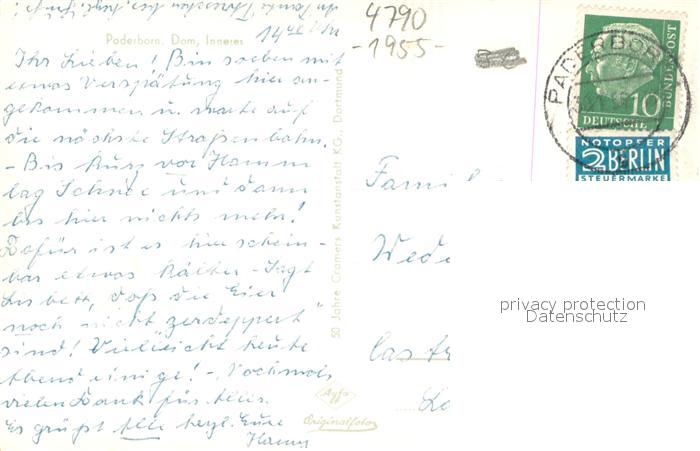 Paderborn, Dom, Inneres
Ihr Lieben! Bin soeben mit
etwas Verspätung hier an-
gekommen u. warte auf
die nächste Straßenbahn.
- Bis kurz vor Hamm
lag Schnee und dann
bis hier nichts mehr!
Dafür ist es hier schein-
bar etwas kälter - Sagt
daß die Eier
"noch nicht zerdeppert"
sind! Vielleicht heute
Abend einige! - Nochmals
vielen Dank für alles.
Es grüßt alle herzl. Eure
50 Jahre Cramers Kunstanstalt KG., Dortmund
Agfa
Originalfoto
4790
-1955-
PADERBORN
10
DEUTSCHE
BUNDESPOST
NOTOPFER
2 BERLIN
STEUERMARKE
Famil
privacy protection
Datenschutz